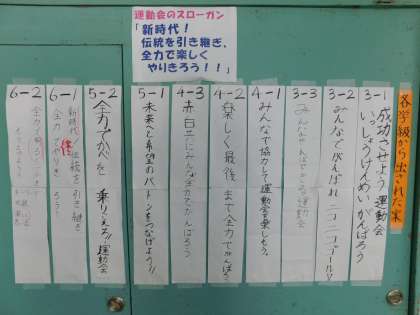 運動会のスローガン
「新時代！
伝統を引き継ぎ、
全力で楽しく
やりきろう！！」
各学級から出された案
3-1
成功させよう運動会
いっしょうけんめいがんばろう
3-2
みんなでがんばれ ニコニコゴール!
3-3
みんなで
運動会
4-1
みんなで協力して運動会楽しもう。
4-2
楽しく最後まで全力でがんばろう
4-3
赤白ともにみんな全力でがんばろう
5-1
未来へと希望のバトンをつなげよう!!
5-2
全力でかべを乗りこえろ!!運動会
6-1
新時代! 伝統を引き継ぎ
全力でやりきろう
6-2